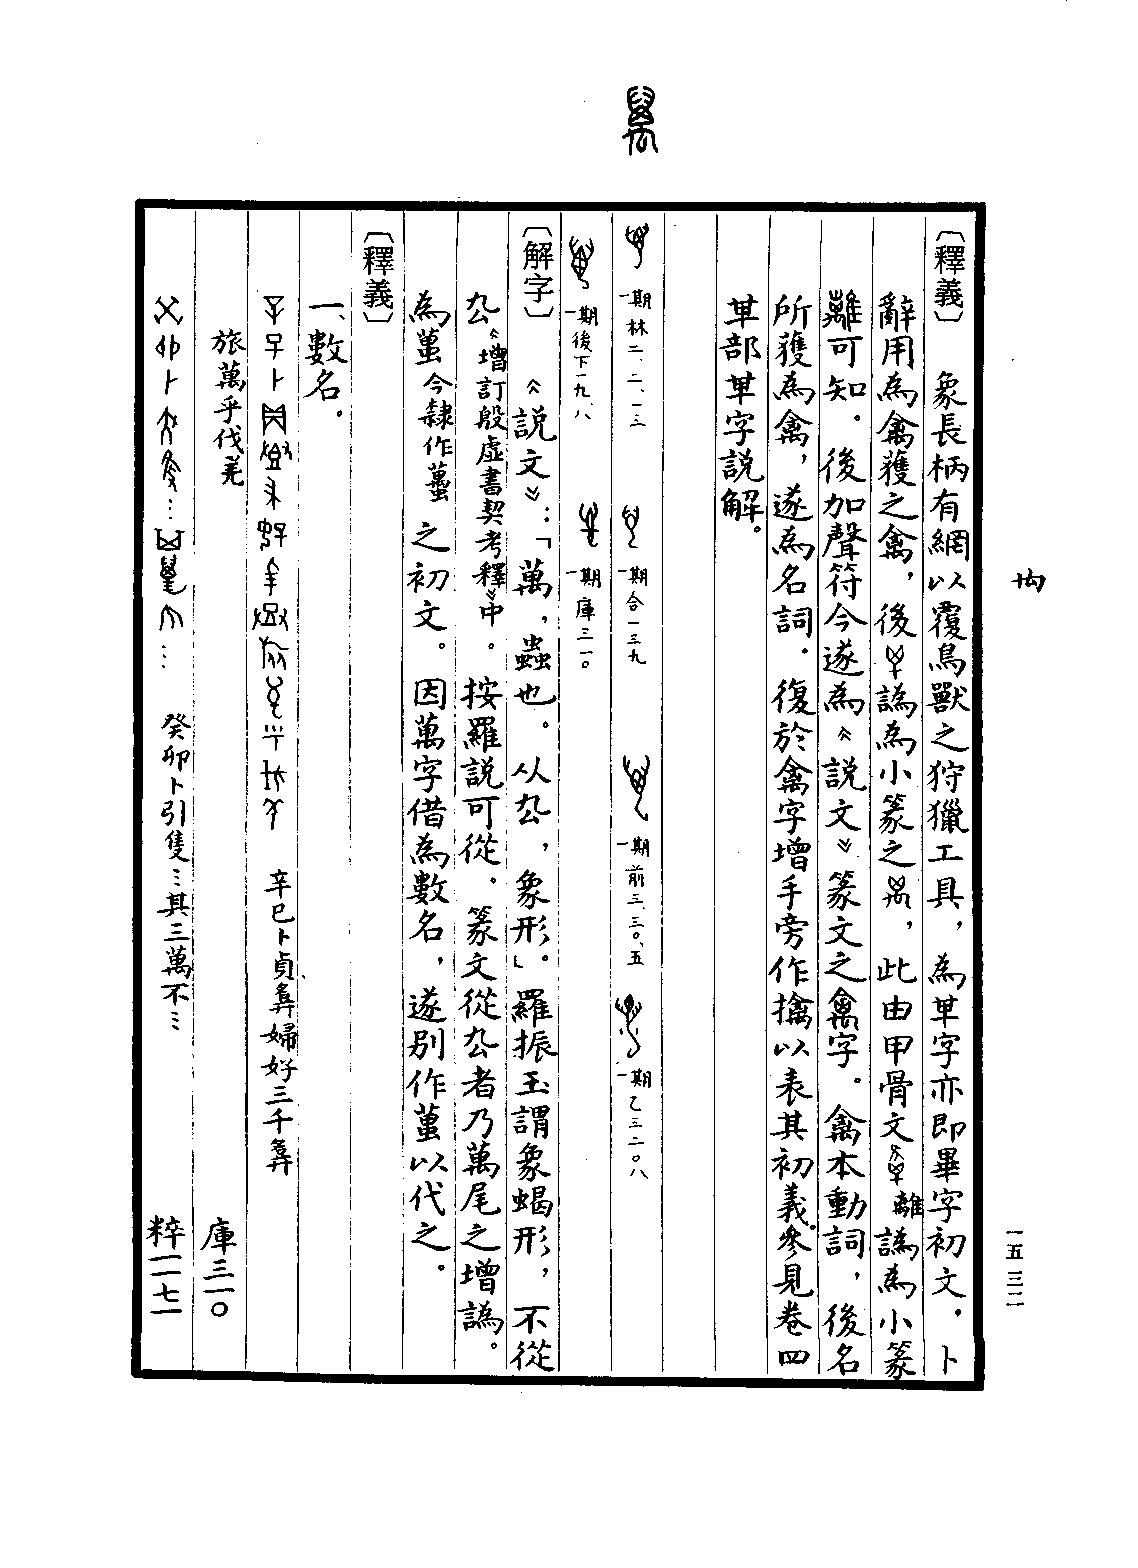 〔釋義〕
象長柄有網以覆鳥獸之狩獵工具，為𠦒字亦即畢字初文．卜
辭用為禽獲之禽，後譌為小篆之，此由甲骨文離譌為小篆
離可知．後加聲符今遂為《說文》篆文之禽字．禽本動詞，後名
所獲為禽，遂為名詞．復於禽字增手旁作擒以表其初義．參見卷四
𠦒部𠦒字說解。
一期林二、二、一三
一期合一三九
一期前三、三〇、五
一期乙三二〇八
一期後下一九、八
一期庫三一〇
〔解字〕
《說文》：「萬，蟲也．从厹，象形」．羅振玉謂象蝎形，不從
厹《增訂殷虛書契考釋》中．按羅說可從．篆文從厹者乃萬尾之增譌。
為䘍今隸作蠆之初文．因萬字借為數名，遂別作䘍以代之．
〔釋義〕
一、數名．
辛巳卜貞𢍏婦好三千𢍏
旅萬乎伐羌
庫三一〇
癸卯卜引隻⋮其三萬不⋮
粹一一七一
一五三二